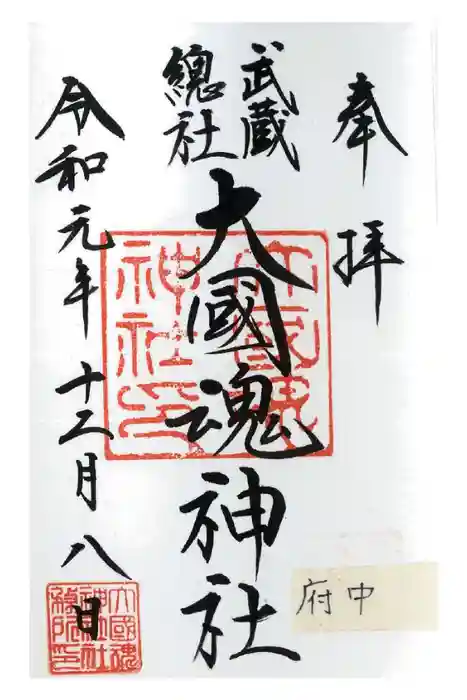 奉拝
武蔵
總社
大國魂神社
大國魂
神社印
令和元年十二月八日
大國魂
神社社
務所印
府中